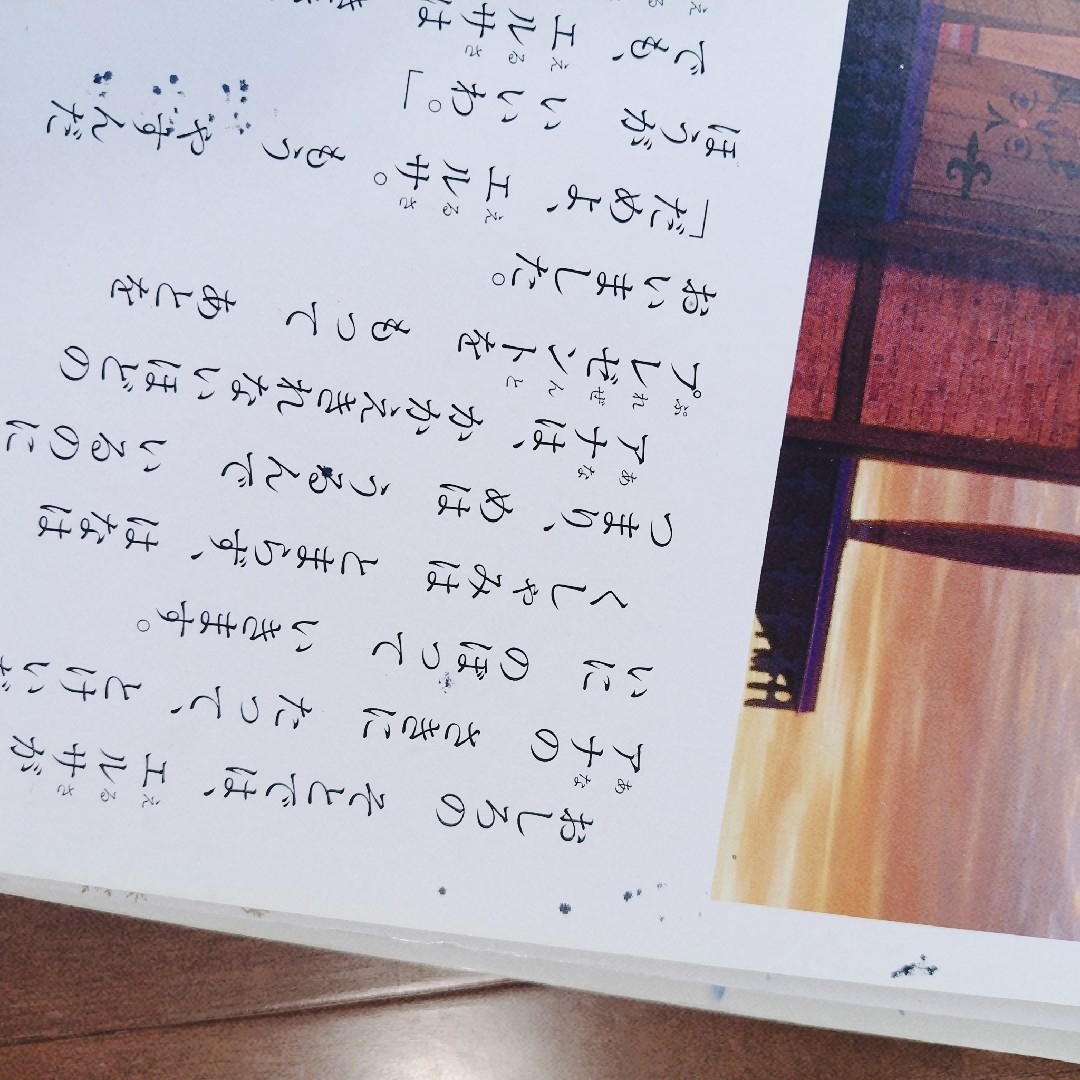 おしろの そとでは、エルサが
アナの さきに たって、とけいだ
いに のぼって いきます。
くしゃみは とまらず、はなは
つまり、めは うるんで いるのに
アナは、かかえきれないほどの
プレゼントを もって あとを
おいました。
「だめよ、エルサ。もう やすんだ
ほうが いいわ。」
でも、エルサは